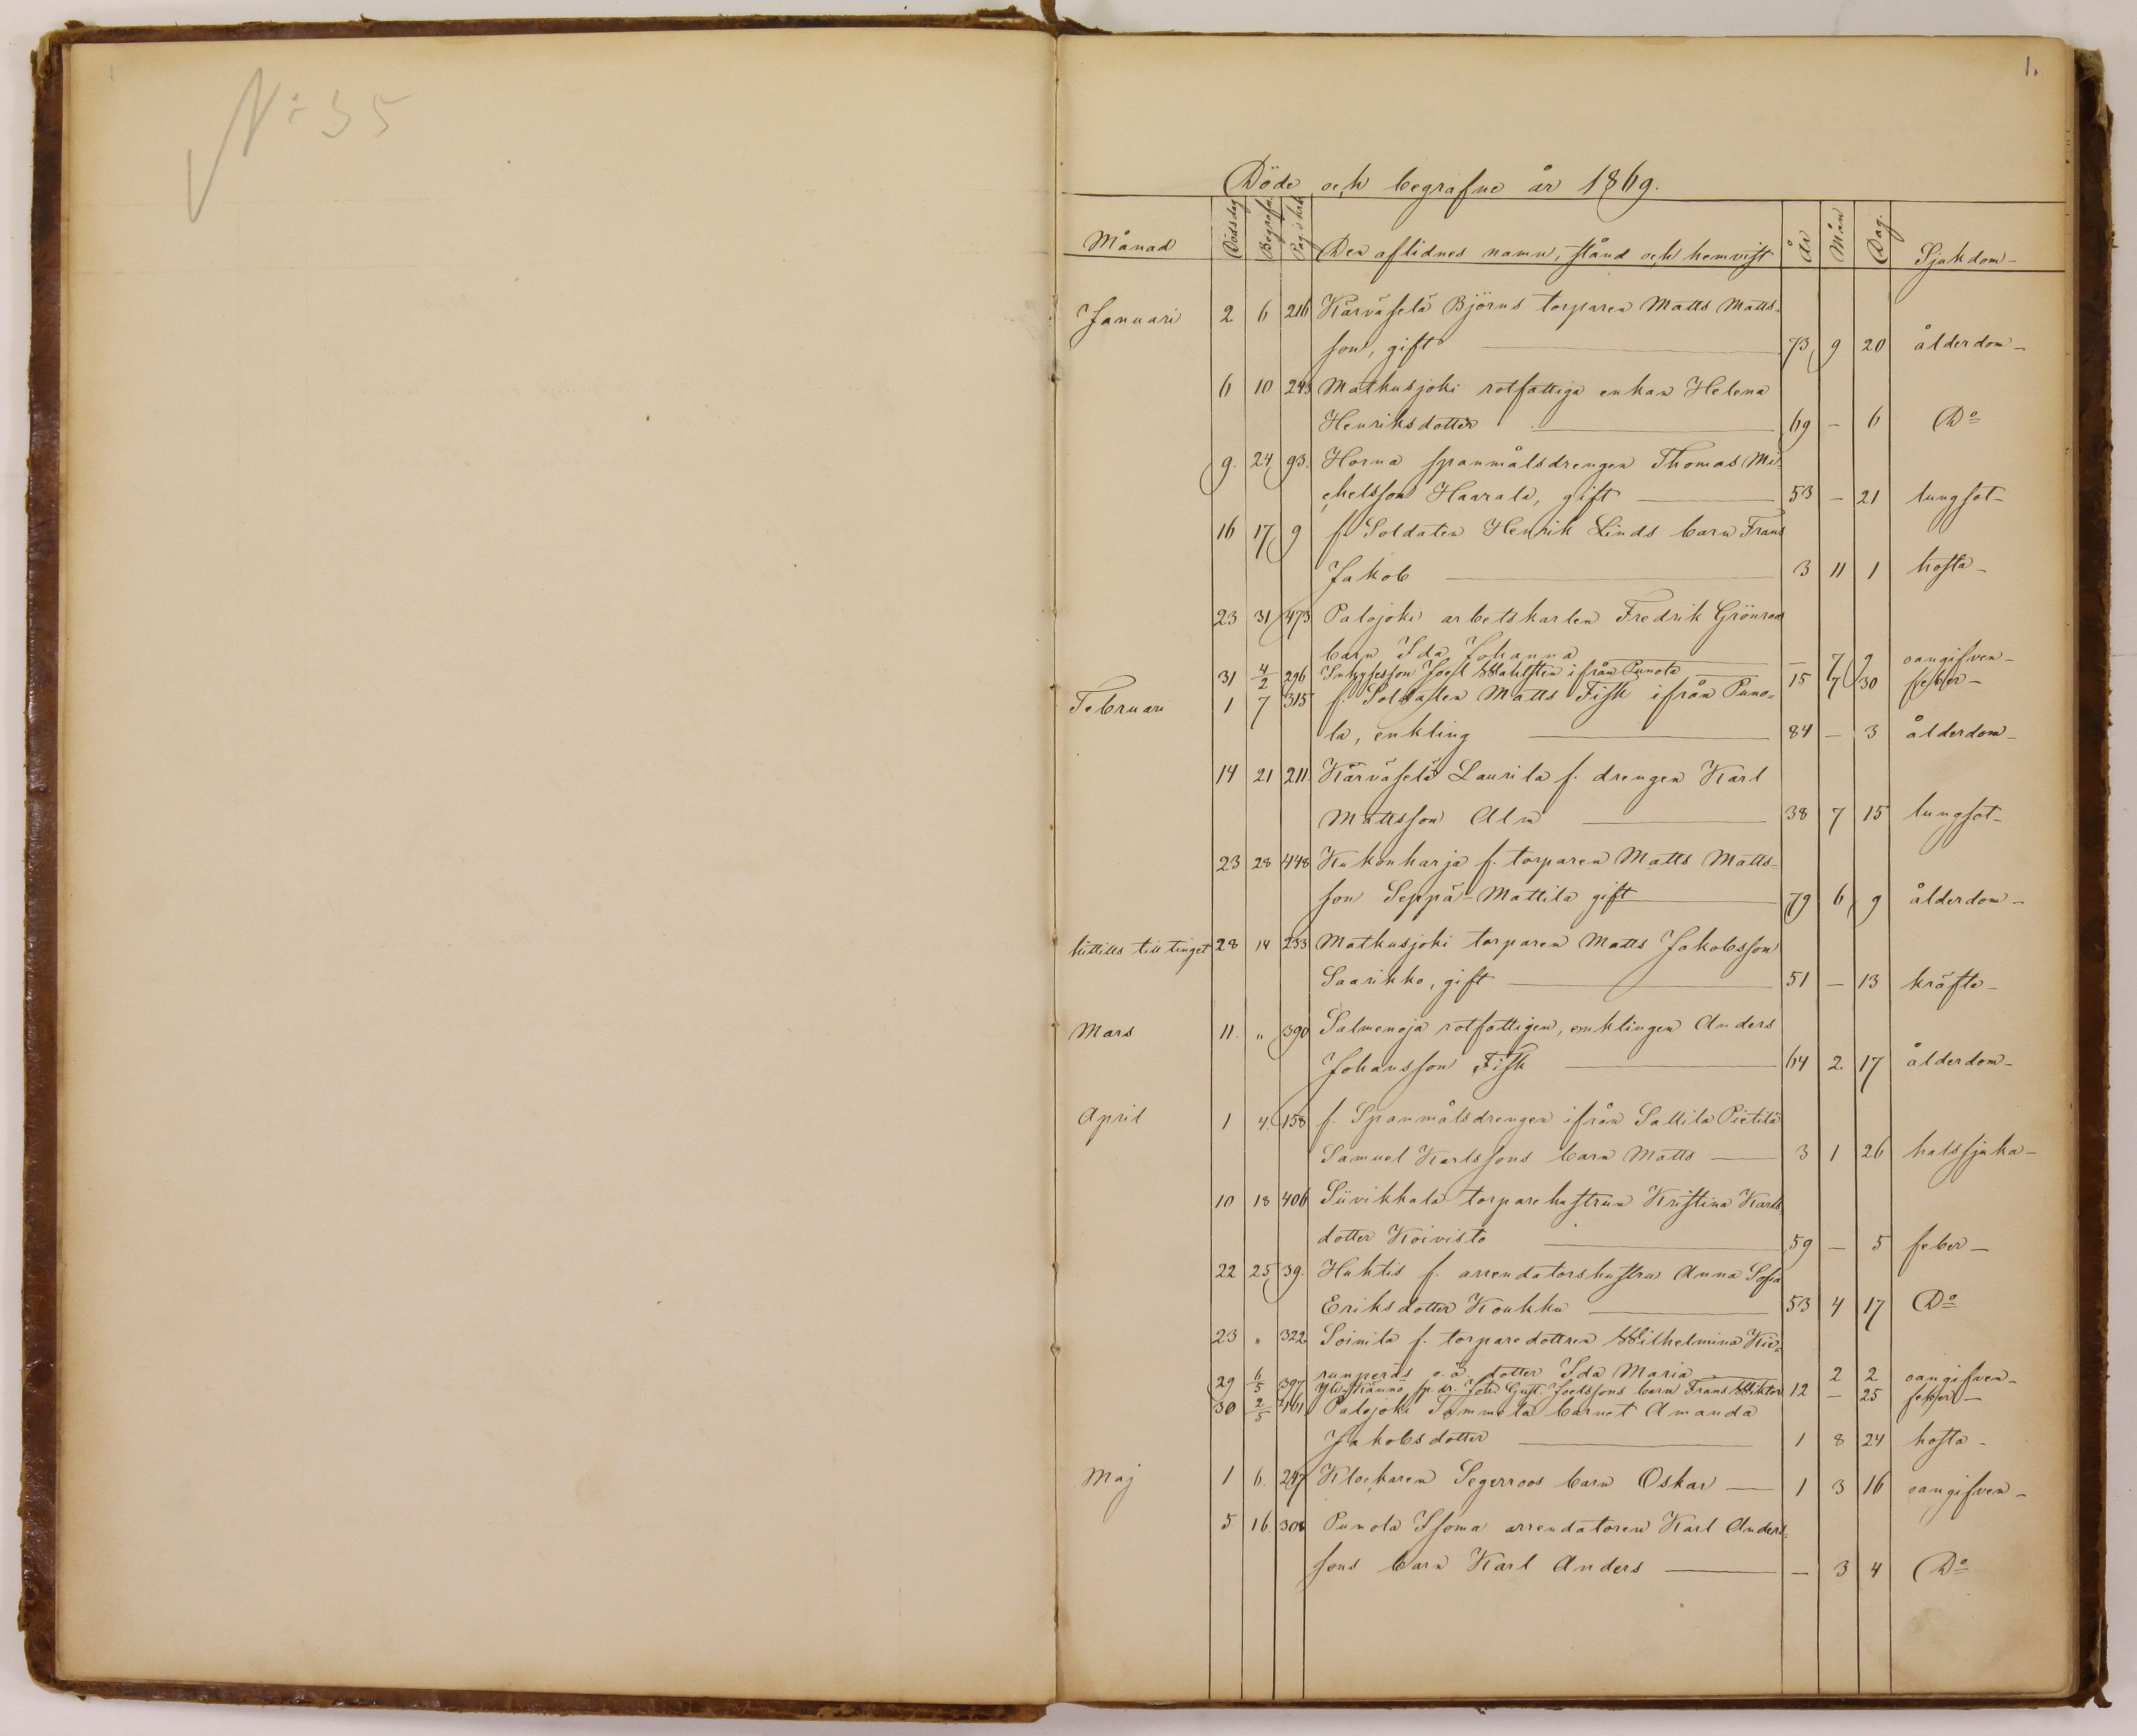 No 35
1.
Döde och begrafne år 1869.
Månad Dödsdag Begrafn. Pag. i kab. Den aflidnes namn, stånd och hemvist År Mån Dag. Sjukdom
Januari 2 6 216 Kärväselä Björns torparen Matts Matts-
son, gift — 73 9 20 ålderdom
6 10 243 Matkusjoki rotfattiga enkan Helena
Henriksdotter — 69 - 6 Do
9. 24 93. Horna spanmålsdrengen Thomas Mi-
chelsson Haarala, gift — 53 - 21 lungsot
16 17 9 f. Soldaten Henrik Linds barn Frans
Jakob — 3 11 1 hosta
23 31 473 Palojoki arbetskarlen Fredrik Grönroos
barn Ida Johanna — - 7 9 oangifven
31 4/2 296 Joel Wahlsten ifrån Punola — 15 7 30 feber
Februari 1 7 315 f. Soldaten Matts Fisk ifrån Puno-
la, enkling — 84 - 3 ålderdom
14 21 211 Kärväselä Laurila f. drengen Karl
Mattsson Alm — 38 7 15 lungsot
23 28 448 Kukonharja f. torparen Matts Matts-
son Seppä-Mattila gift — 79 6 9 ålderdom
hittills till tinget 28 14 233 Matkusjoki torparen Matts Jakobsson
Saarikko, gift — 51 - 13 kräfta
Mars 11. " 390 Salmenoja rotfattigen, enklingen Anders
Johansson Fisk — 64 2 17 ålderdom
April 1 4. 158 f. Spanmålsdrengen ifrån Sattila Pietilä
Samuel Karlssons barn Matts — 3 1 26 halssjuka
10 18 406 Siivikkala torparehustrun Kristina Karls-
dotter Koivisto — 59 - 5 feber
22 25 39. Huhtis f. arrendatorshustru Anna Sofia
Eriksdotter Koukku — 53 4 17 Do
23 " 322 Soinila f. torparedottren Wilhelmina Kie-
runperäs o.ä. dotter Ida Maria — 2 2 oangifven
29 6/5 397 Yli-Kännö sp. dr. Joh. Gust. Joelssons barn Frans Wiktor 12 - 25 feber
30 2/5 461 Palojoki Tammela barnet Amanda
Jakobsdotter — 1 8 24 hosta
Maj 1 6. 247 Klockaren Segerroos barn Oskar — 1 3 16 oangifven
5 16. 308 Punola Isoma arrendatoren Karl Anders-
sons barn Karl Anders — - 3 4 Do